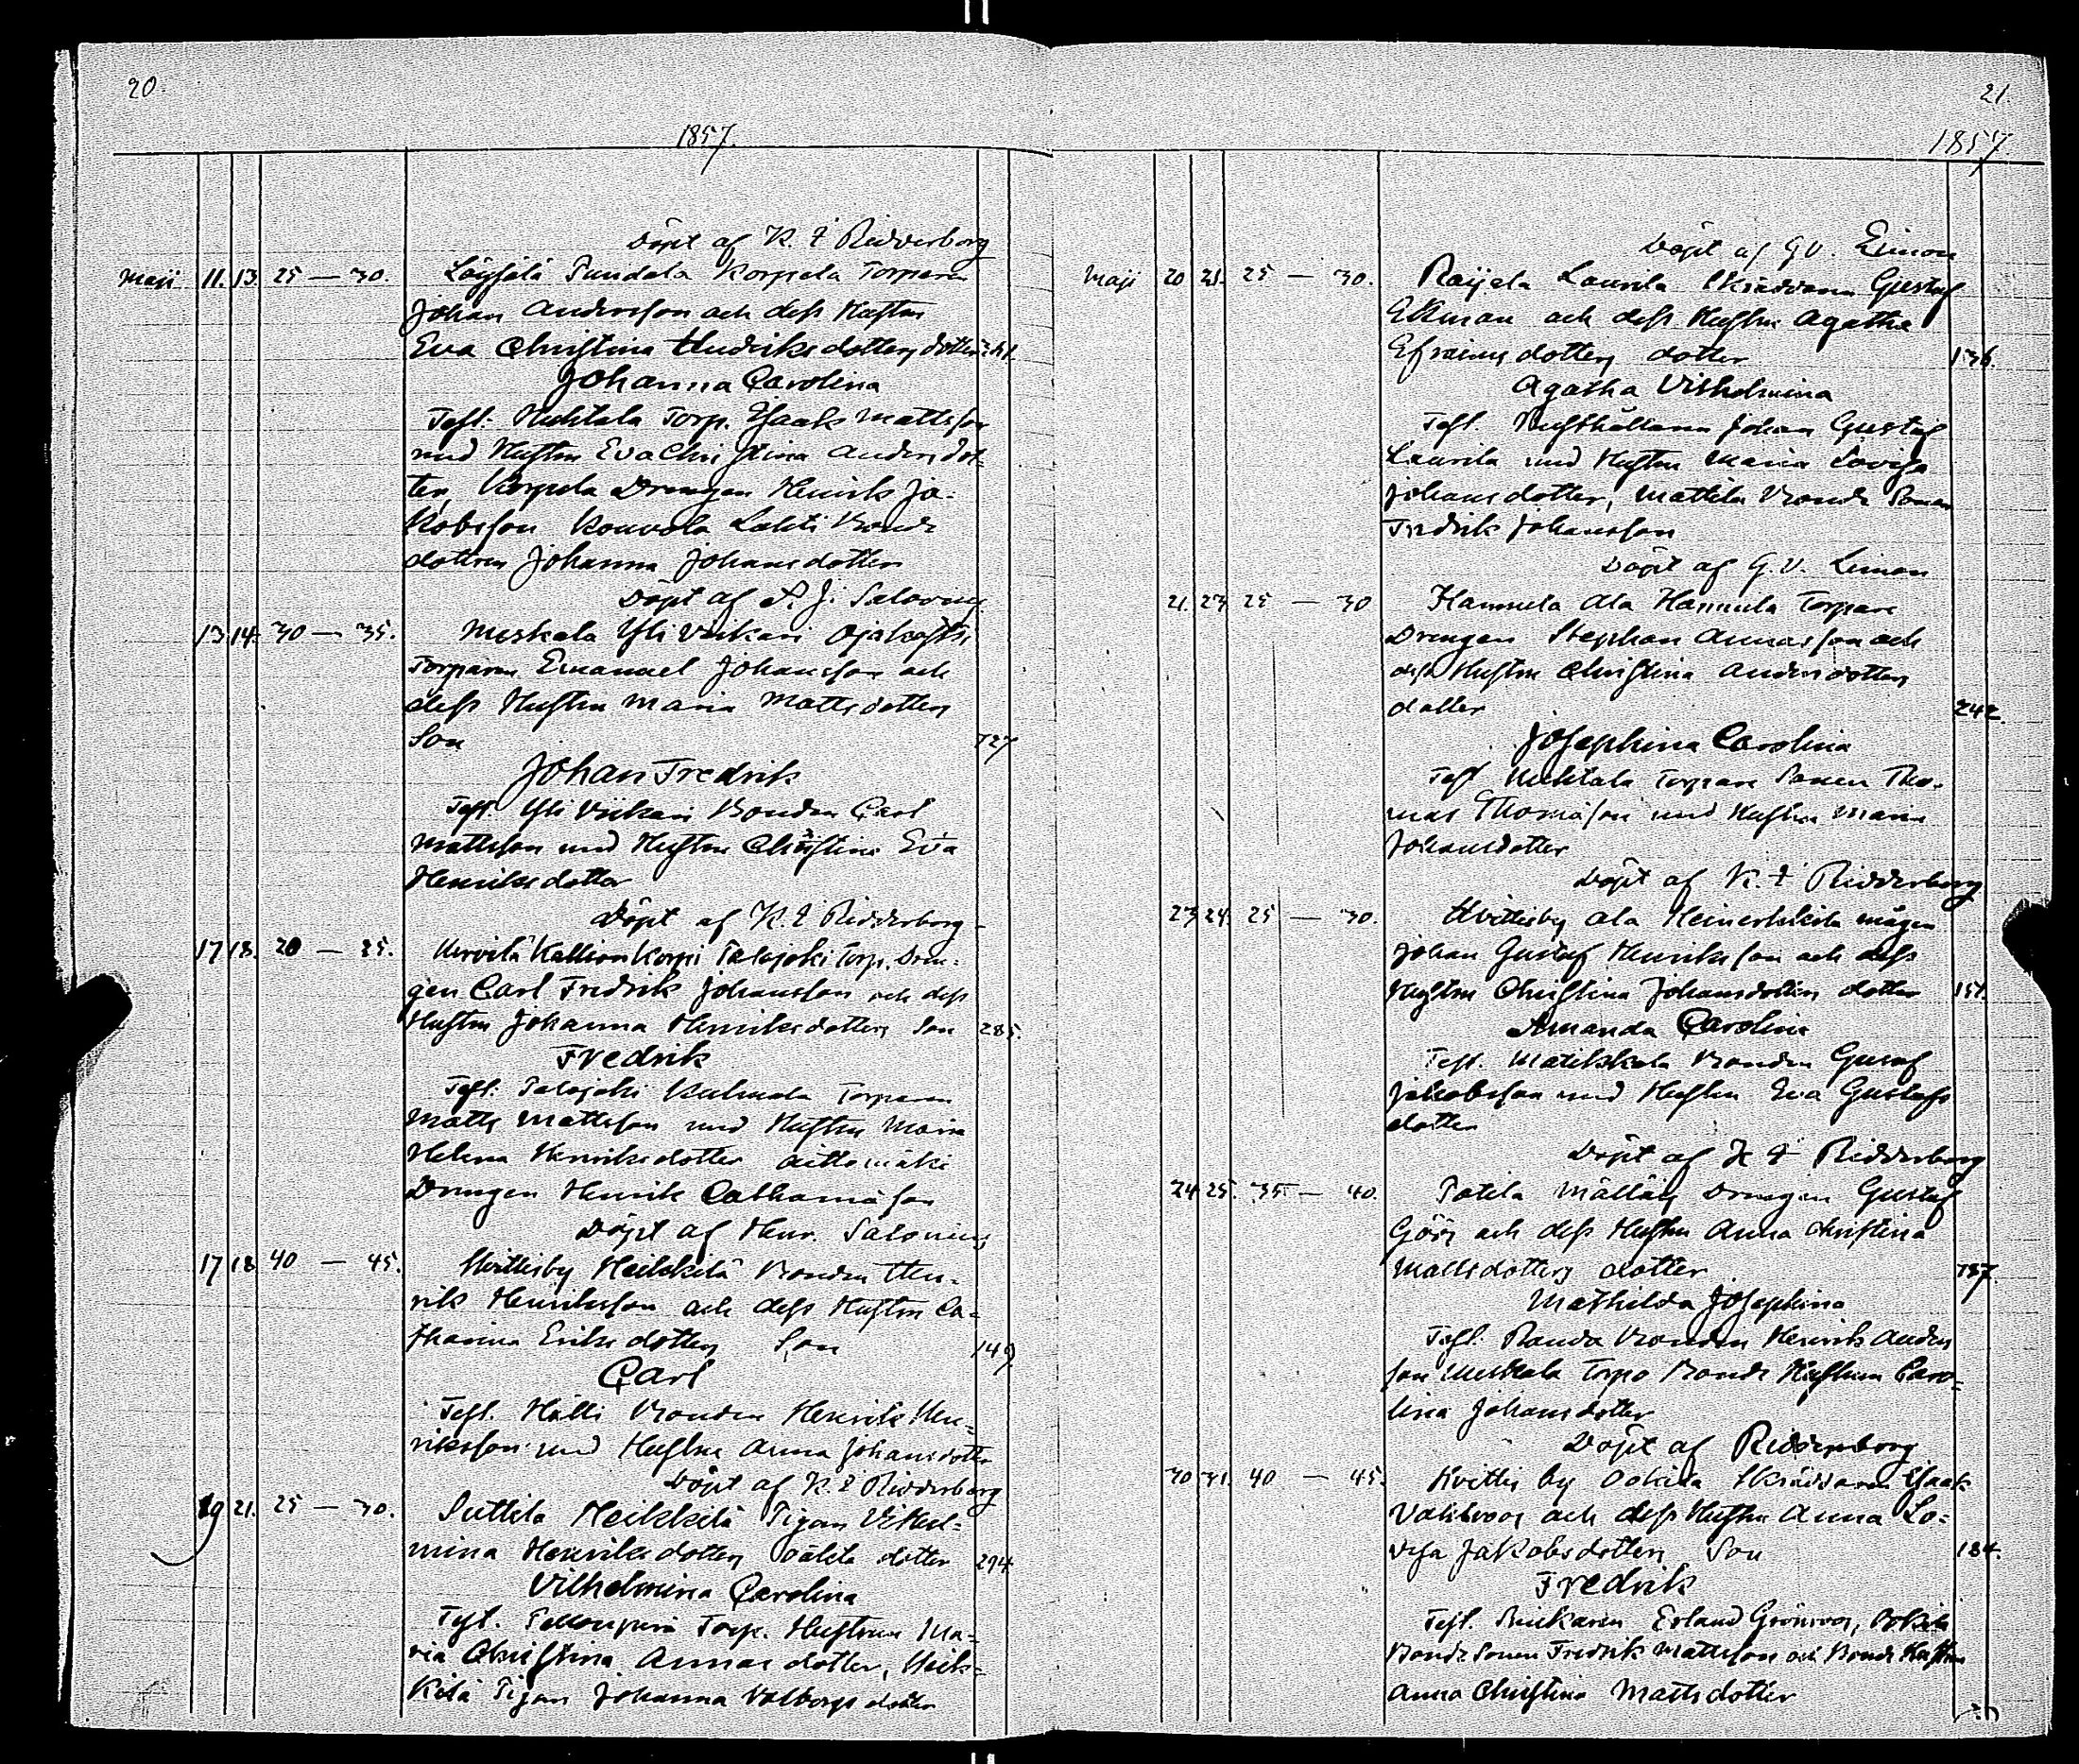 20.
1857.
Döpt af K. F Ridderborg
Maji 11. 13. 25 — 30. Löysälä Pundala Korpela Torparen
Johan Andersson och dess Hustru
Eva Christina Hendriksdotters dotter
Johanna Carolina
Test: Huhtala Torp. Isaak Mattsson
med Hustru Eva Christina Andersdot-
ter, Korpela Drengen Henrik Ja-
kobsson Kouvola Lahti Bonde
dottren Johanna Johansdotter
Döpt af J. Salovius
13. 14. 30 — 35. Meskala Yli Viikari Ojakasti
Torparen Emanuel Johansson och
dess Hustru Maria Mattsdotters
Son 127
Johan Fredrik
Test. Yli Viikari Bonden Carl
Mattsson med Hustru Christina Eva
Henriksdotter
Döpt af K. F Ridderborg
17 18. 20 — 25. Kallionkorpi Talojoki Torp. Dren-
gen Carl Fredrik Johansson och dess
Hustru Johanna Henriksdotters Son 285.
Fredrik
Test. Talojoki Kulmala Torparen
Matts Mattsson med Hustru Maria
Helena Henriksdotter Aittomäki
Drengen Henrik
Döpt af Henr. Salonius
17 18 40 — 45. Kvittisby Heikkilä Bonden Hen-
rik Henriksson och dess Hustru Ca-
tharina Eriksdotters Son 149
Carl
Test. Hälli Bonden Henrik Hen-
riksson med Hustru Anna Johansdotter
Döpt af K. F Ridderborg
19 21. 25 — 30. Suttila Heikkilä Pigan Vilhel-
mina Henriksdotters oäkta dotter 294
Vilhelmina Carolina
Test. Torp. Hustrun Ma-
ria Christina Annas dotter, Heik-
kilä Pigan Johanna Valborgs dotter
21.
1857
Döpt af G V. Limon
Maji 20 21. 25 — 30. Raijala Laurila Skräddaren Gustaf
Ekman och dess Hustru Agatha
Efraims dotters dotter 136.
Agatha Vilhelmina
Test. Rusthållaren Johan Gustaf
Laurila med Hustru Maria Lovisa
Johansdotter, Mattila Bonde Sonen
Fredrik Johansson
Döpt af G. V. Limon
21. 23 25 — 30 Hannula Ala Hannula Torpare
Drengen Stephan Annasson och
dess Hustru Christina Andersdotters
dotter 242.
Josephina Carolina
Test Huhtala Torpare Sonen Tho-
mas Thomasson med Hustru Maria
Johansdotter
Döpt af K. F Ridderborg
23 24. 25 — 30. Kvittisby Ala mågen
Johan Gustaf Henriksson och dess
Hustru Christina Johansdotters dotter 151.
Amanda Carolina
Test. Bonden Gustaf
Jakobsson med Hustru Eva Gustafs
dotter
Döpt af K F Ridderborg
24 25. 35 — 40. Potila Drengen Gustaf
Göös och dess Hustru Anna Christina
Mattsdotters dotter
Mathilda Josephina
Test. Bonden Henrik Anders
son Torpo Bonde Hustrun Caro-
lina Johansdotter
Döpt af Ridderborg
30 31. 40 — 45. Kvittis by Ookila Skräddaren Isaak
och dess Hustru Anna Lo-
visa Jakobsdotters Son 184.
Fredrik
Test. Erland Grönroos, Ookila
Bonde Sonen Fredrik Mattsson och Bonde Hustrun
Anna Christina Mattsdotter